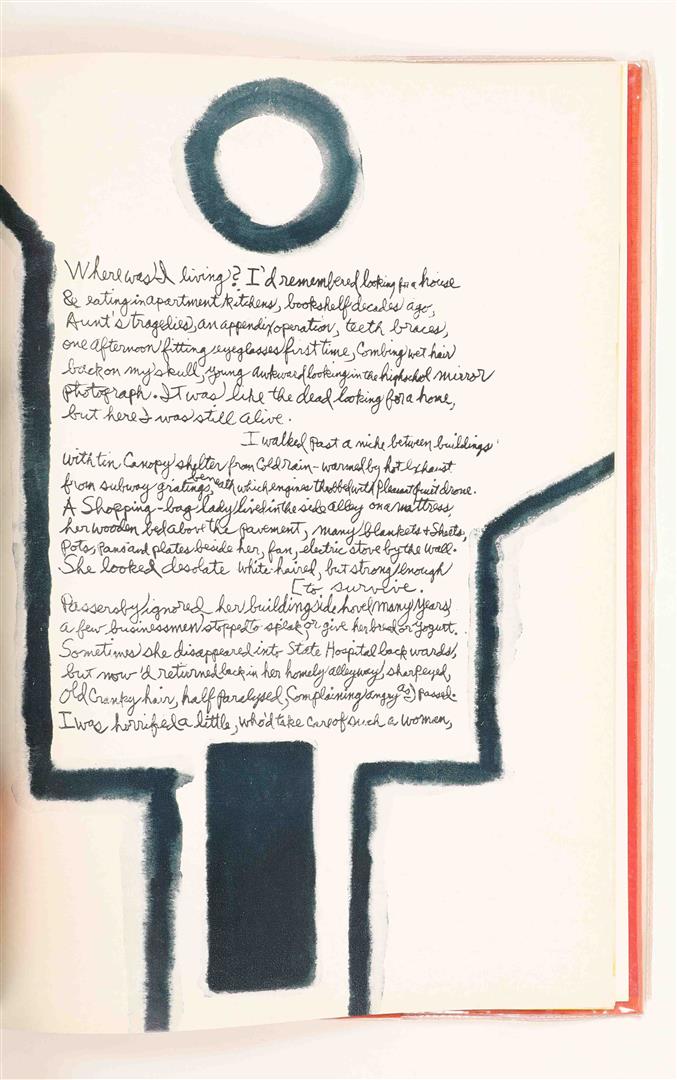 Where was I living? I'd remembered looking for a house
& eating in apartment kitchens, bookshelf decades ago,
Aunt's tragedies, an appendix operation, teeth braces,
one afternoon fitting eyeglasses first time, Combing wet hair
back on my skull, young awkward looking in the highschol mirror
photograph. It was like the dead looking for a home,
but here I was still alive.
I walked past a niche between buildings
with tin Canopy shelter from Cold rain - warmed by hot exhaust
from subway gratings, beneath which engines throbbed with pleasant quiet drone.
A Shopping-bag lady lived in the side alley on a mattress,
her wooden bed above the pavement, many blankets & sheets,
Pots, Pans and plates beside her, fan, electric stove by the wall.
She looked desolate white-haired, but strong enough
[to survive.
Passersby ignored her buildingside hovel many years,
a few businessmen stopped to speak, or give her bread or yogurt.
Sometimes she disappeared into State Hospital back wards,
but now'd returned back in her homely alleyway, sharp eyed,
old Cranky hair, half paralysed, Complaining angry as I passed.
I was horrified a little, who'd take care of such a woman,